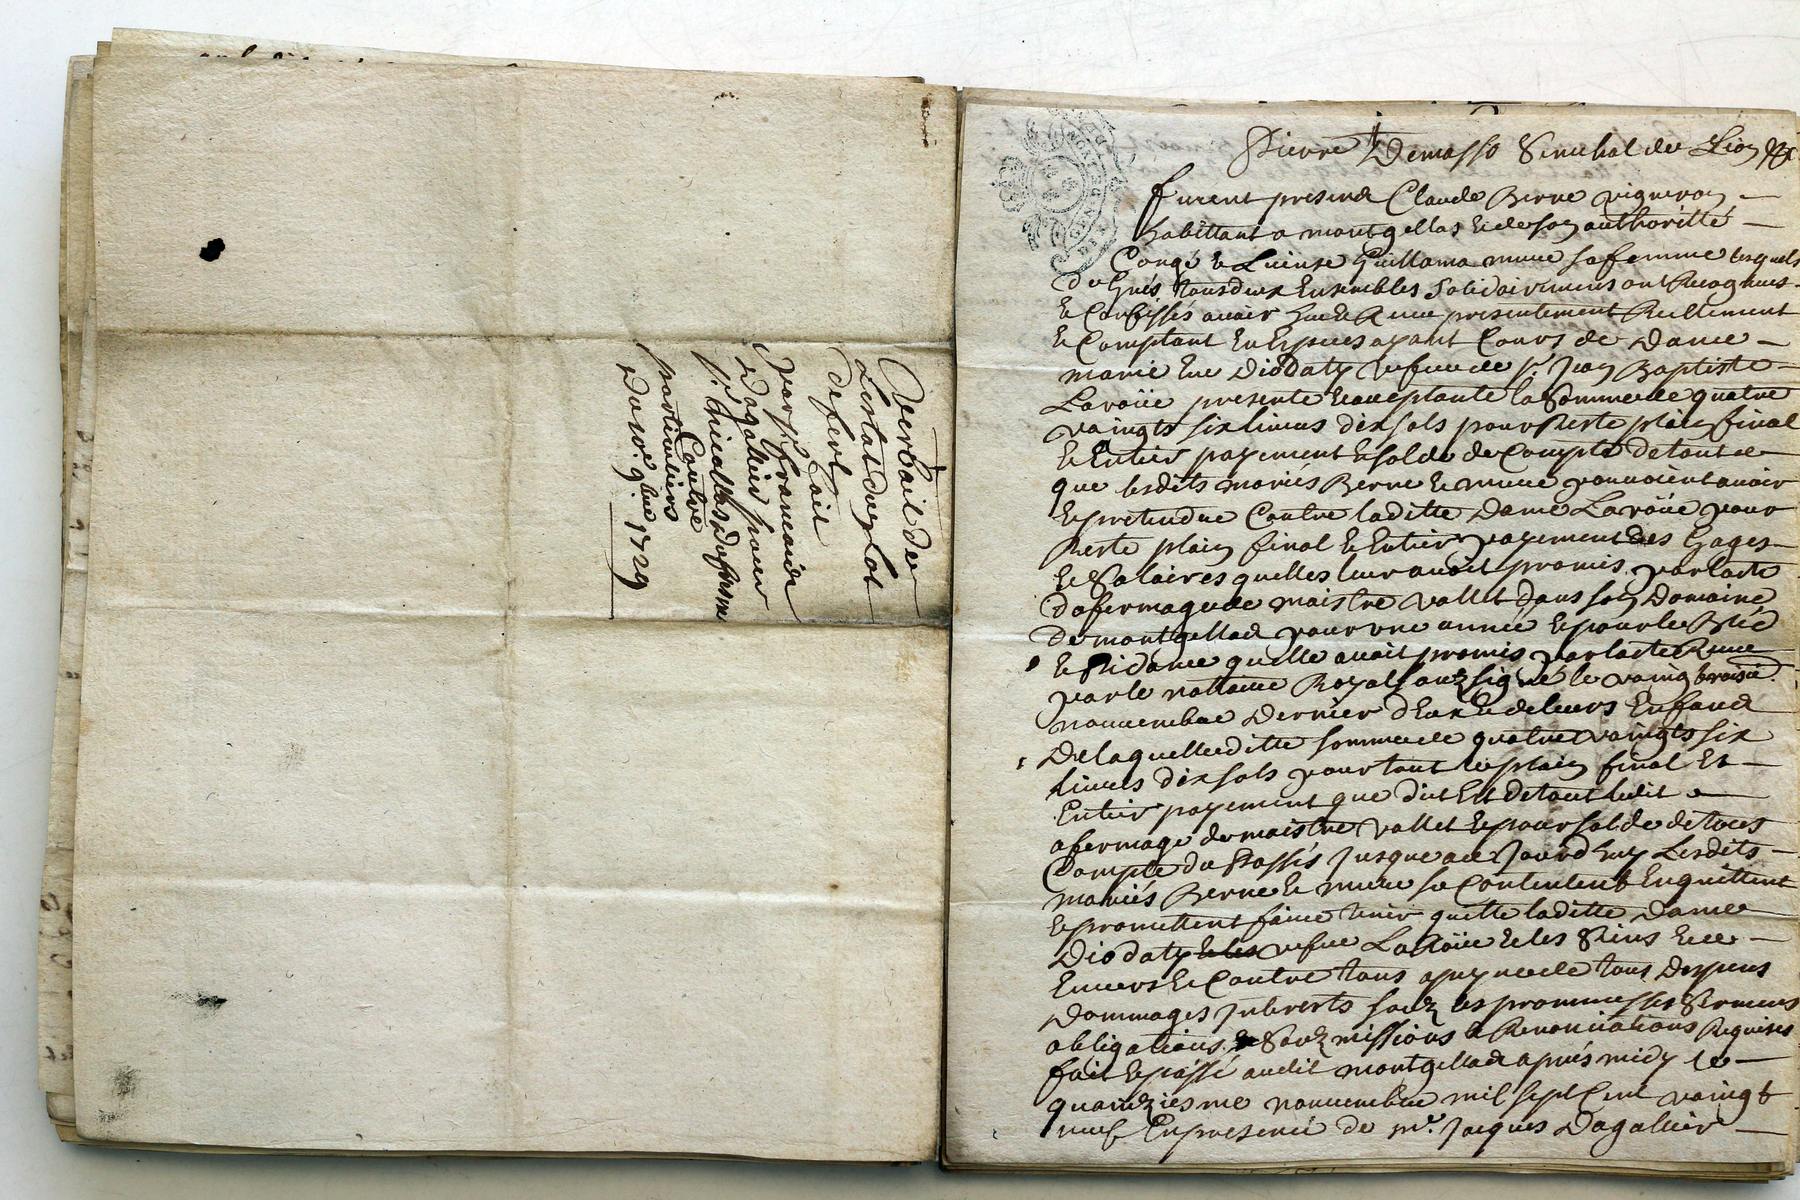 Verbail de
Lestat du plot
de fert
fait
par francoise
Dagallier pour
Sr. Nicollas Dufresne
Contre
particuliers
Du 10e. 9bre 1729
Pierre Demasso Senechal de Lion &c
furent presend Claude Berne vigneron
habittant a montgellas & de son authoritté
Congé & Guillama mure sa femme lesquels
de Grés tous deux Ensembles Solidairement ont Recognus
& Confessés avoir heu & Receu presentement Reellement
& Comptant En Espesses ayant Cours de Dame
marie Eve Diodaty vefve de Sr. Jean Baptiste
Laroüe presente & acceptante la Somme de quatre
vaingts six livres dix sols pour Reste plain final
& Entier payement & solde de Compte de tout ce
que lesdits mariés Berne & mure pouvoient avoir
& pretendue Contre laditte Dame Laroüe pour
Reste plain final & Entier payement des Gages
& Salaires quelles leur avoit promis par lacte
dafermage de maistre vallet dans son Domaine
de montgellad pour une année & pour le Bled
& Pidance quelle avoit promis par lacte Receu
par le nottaire Royal souzsigné le vaing troisie.
nouvembre Dernier d'Eux & de leurs Enfand
De laquelle ditte somme de quatre vaingts six
livres dix sols pour tout & plain final Et
Entier payement que dit Est de tout ledit
afermage de maistre vallet & pour solde de tous
Compte du Passés Jusque a ce Jourd'huy Lesdits
mariés Berne & mure se Contentent En quittent
& promettent faire tenir quitte laditte Dame
Diodaty vefve Laroüe & les Siens & ce
Envers & Contre tous a peyne de tous Despens
Dommages Intherests souz les prommesses Serments
obligations & Souzmissions & Renonciations Requises
fait & passé audit montgellad aprés midy le
quaindziesme nouvembre mil sept Cent vaingt
neuf En presence de Mr. Jacques Dagallier